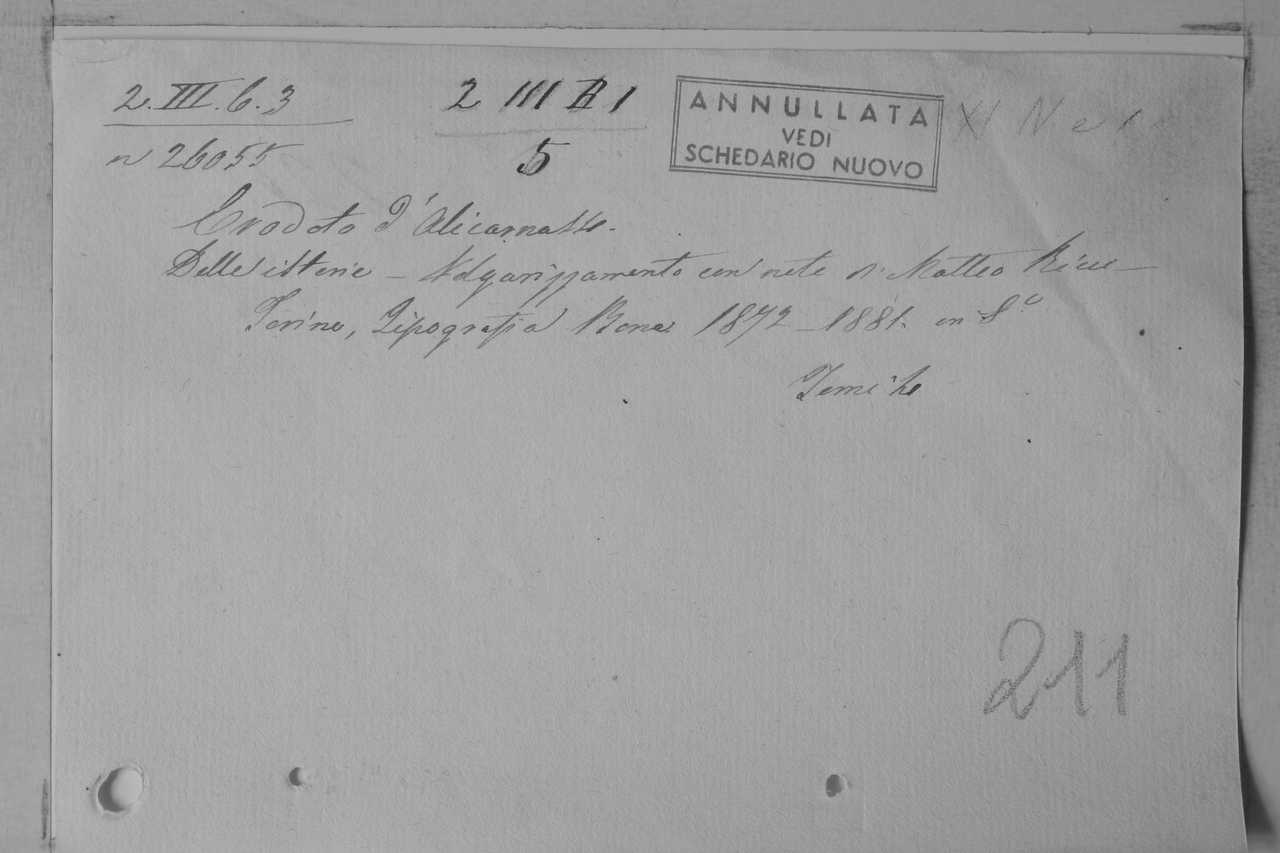 2.III.6.3
n 26055
2 III B 1
5
ANNULLATA
VEDI
SCHEDARIO NUOVO
XI N e 1
Erodoto d'Alicarnasso.
Delle istorie – Volgarizzamento con note di Matteo Ricci –
Torino, Tipografia Bona 1872–1881. in 8°
Tomi
211